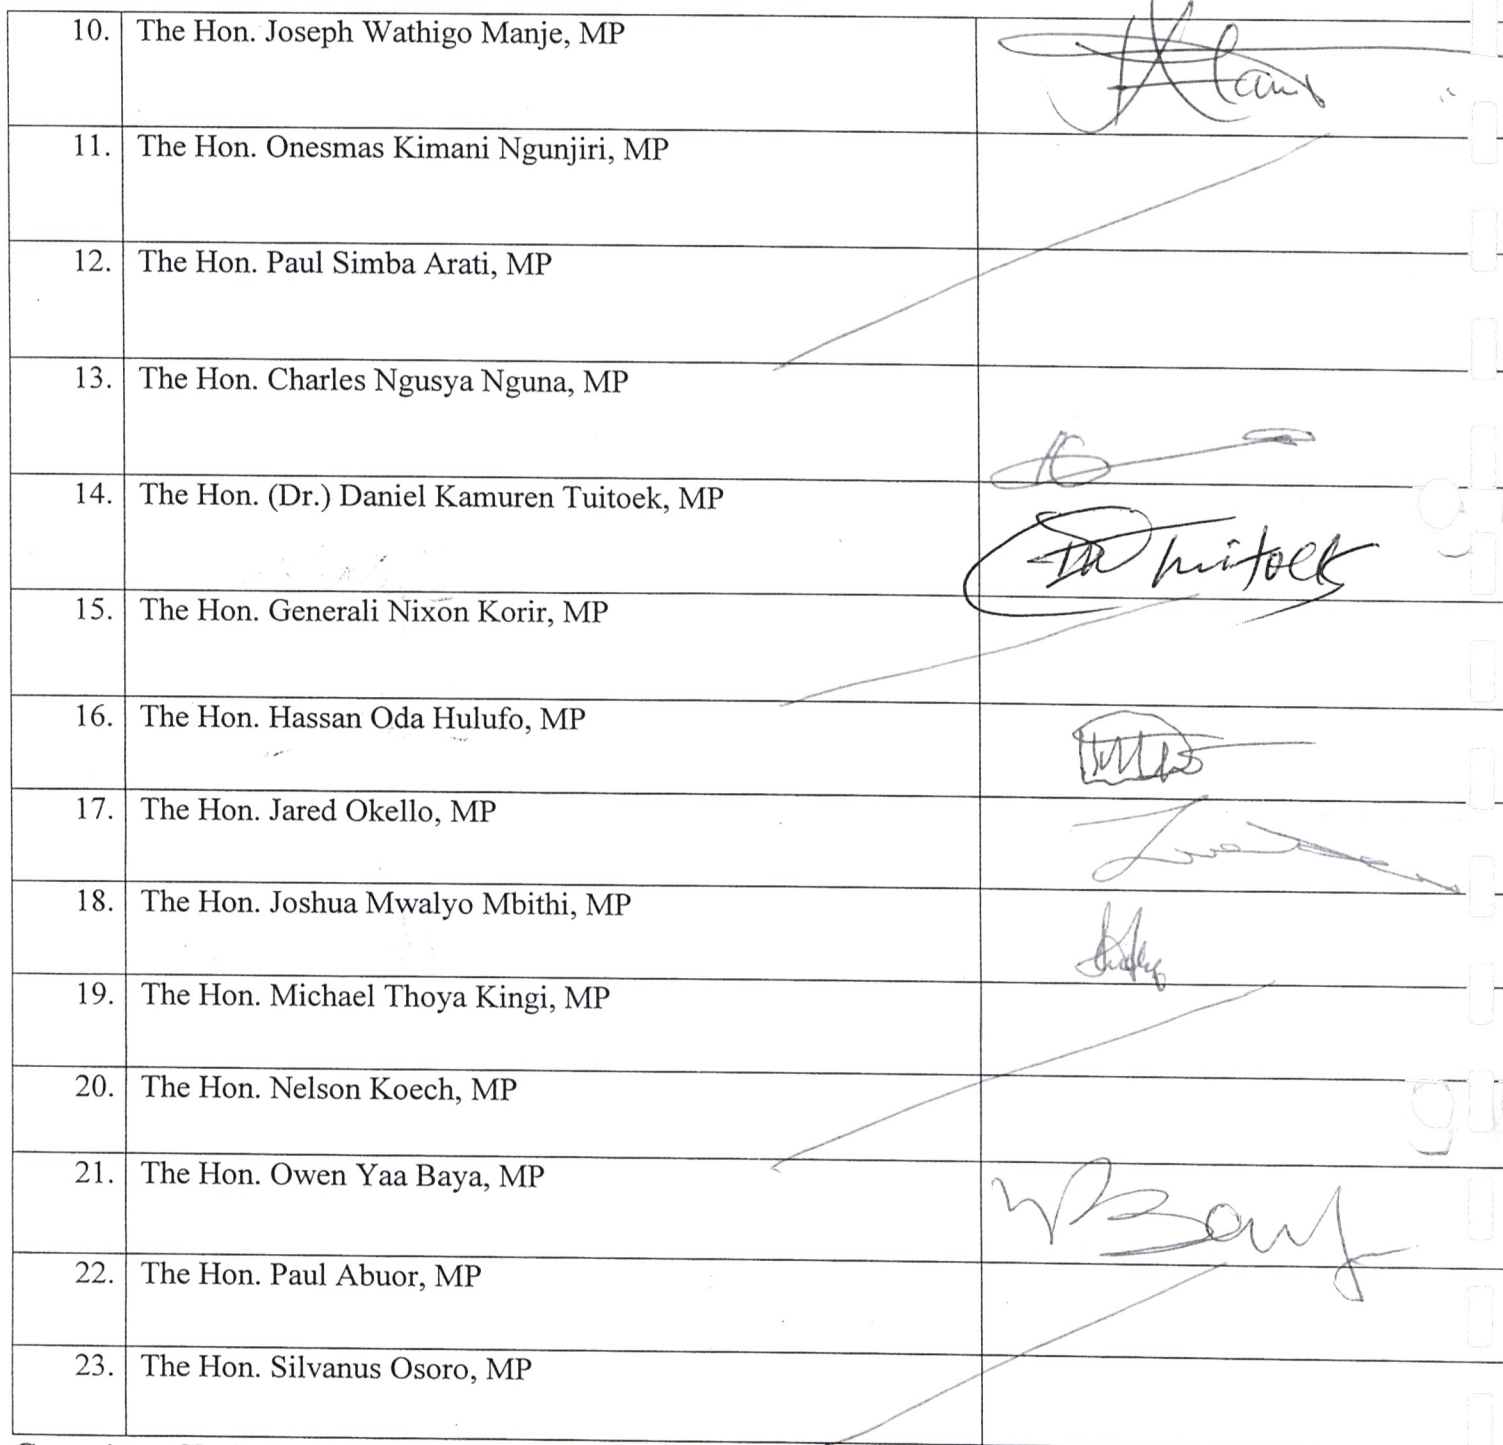 10. The Hon. Joseph Wathigo Manje, MP
11. The Hon. Onesmas Kimani Ngunjiri, MP
12. The Hon. Paul Simba Arati, MP
13. The Hon. Charles Ngusya Nguna, MP
14. The Hon. (Dr.) Daniel Kamuren Tuitoek, MP
Tuitoek
15. The Hon. Generali Nixon Korir, MP
16. The Hon. Hassan Oda Hulufo, MP
17. The Hon. Jared Okello, MP
18. The Hon. Joshua Mwalyo Mbithi, MP
19. The Hon. Michael Thoya Kingi, MP
20. The Hon. Nelson Koech, MP
21. The Hon. Owen Yaa Baya, MP
22. The Hon. Paul Abuor, MP
23. The Hon. Silvanus Osoro, MP